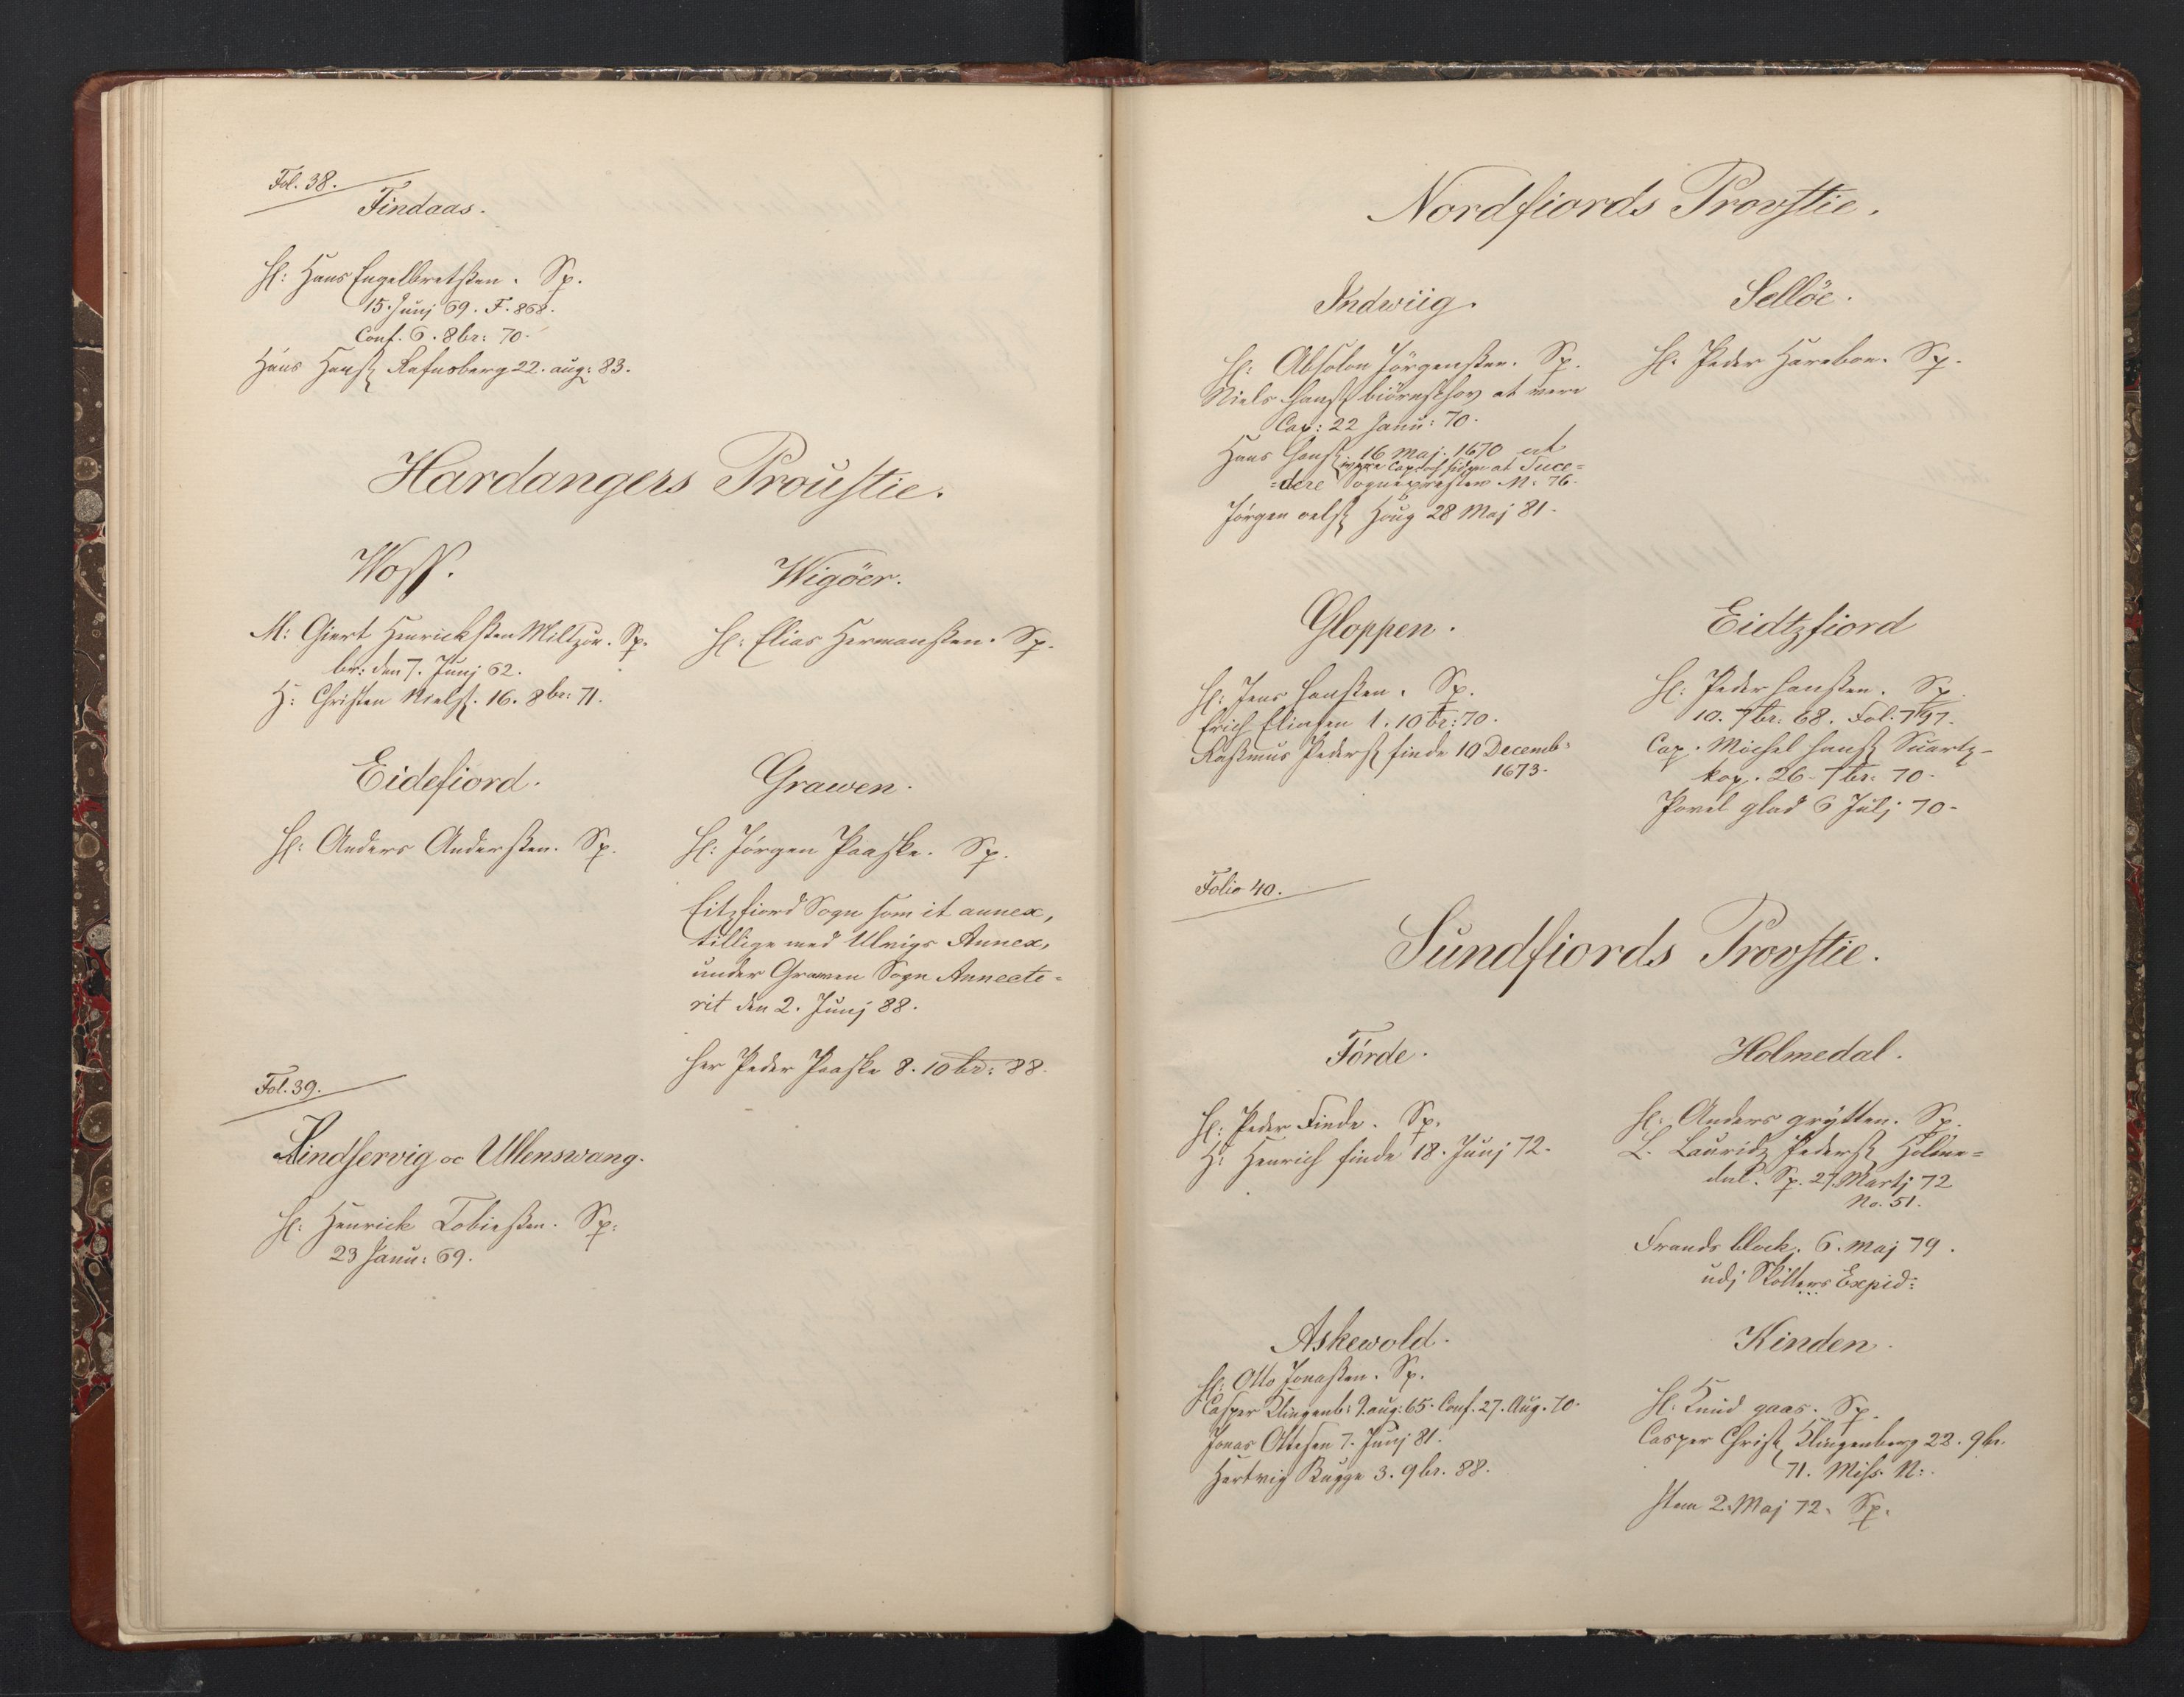 Fol. 38.
Findaas.
H: Hans Engelbretsen. Sp.
15. Junj 69. F. 868.
Conf. 6. 8br: 70.
Hans Hanss Rafnsberg 22. aug: 83.
Hardangers Proustie.
Woss.
M: Giert Henricksen Miltzou. Sp.
br: den 7. Junj 62.
H: Christen Nielss. 16. 8br: 71.
Wigöer.
H: Elias Hermansen. Sp.
Eidefiord.
H: Anders Andersen. Sp.
Grawen.
H: Jörgen Paaske. Sp.
Eitzfiord Sogn som it annex,
tillige med Ulvigs Annex,
under Grawen Sogn Annecte-
rit den 2. Junj 88.
Her Peder Paaske 8. 10br: 88.
Fol. 39.
Kindservig oc Ullenswang.
H: Henrick Tobiesen. Sp:
23 Janu: 69.
Nordfiords Provstie.
Indwiig.
H: Absolon Jörgensen. Sp.
Niels Hanss biörnskov at være
Cap: 22 Janu: 70.
Hans Hanss 16 Maj. 1670 at
være Cap: och siden at Succe=
=dere Sognepresten M: 76.
Jörgen oelss Houg 28 Maj 81.
Sellöe.
H: Peder Harebou. Sp.
Gloppen.
H: Jens Hansen. Sp.
Erich Eliasen 1. 10br: 70.
Rasmus Pederss finde 10 Decemb:
1673.
Eidtzfiord
H: Peder Hansen. Sp.
10. 7br: 68. Fol. 797.
Cap. Michel Hanss Suartz-
kop. 26. 7br: 70.
Povel glad 6 Julj 70.
Folio 40.
Sundfiords Provstie.
Förde.
H: Peder Finde. Sp.
H: Henrich finde 18. Junj 72.
Holmedal.
H: Anders grÿtten. Sp.
L. Lauridz Pederss Holme=
dal. Sp. 27. Martj 72
No. 51.
Frands block. 6. Maj 79.
udj Stöllers Expid:
Askewold.
H: Otto Jonassen. Sp.
Casper Klingenb: 9. aug: 65. Conf. 27. Aug. 70.
Jonas Ottesen 7. Junj 81.
Hertvig Bugge 3. 9br. 88.
Kinden.
H: Knud gaas. Sp.
Casper Christ Klingenberg 22. 9br.
71. Miss. N:.
Item 2. Maj 72. Sp.